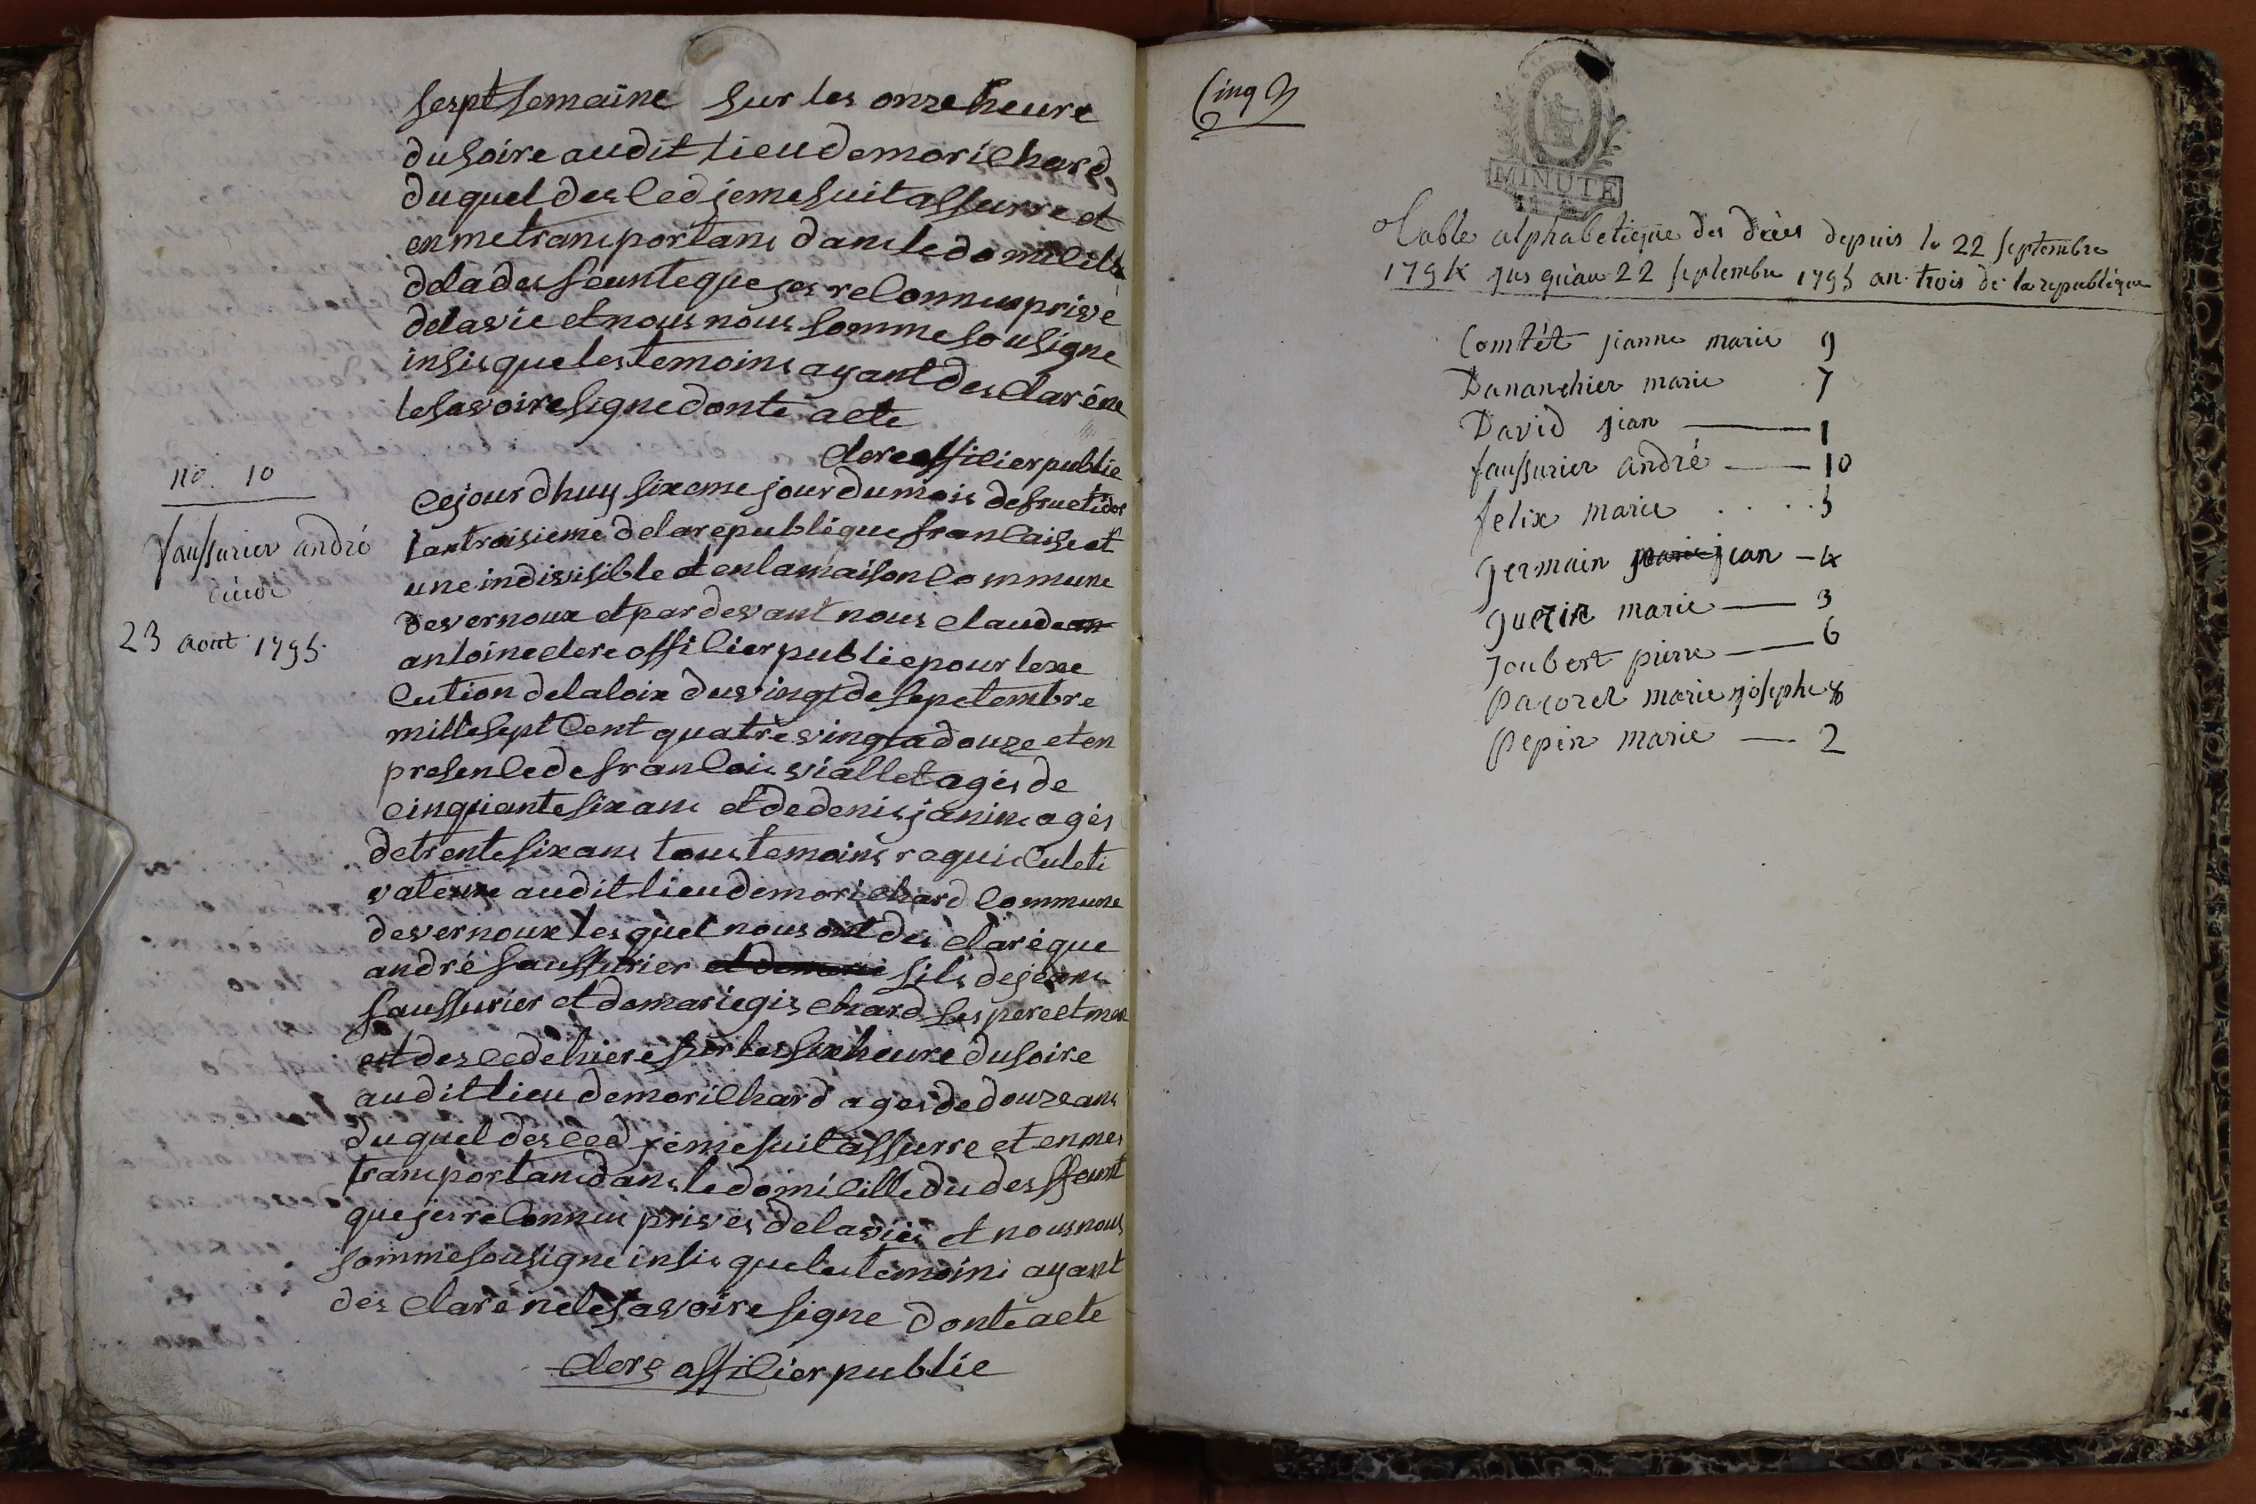 sesptsemaine sur les onze heure
dusoire audit lieu de morilhard
duquel des ced jeme suit assurre et
en me transportans dans le domicille
de la des feunte que jes reconnus privé
de la vie et nous nous somme sousigne
insis que les temoins ayant desclaréne
le savoire signe donte acte
clerc officier public
no. 10
faussurier andré
23 aout 1795.
cejourdhuy sixeme jour du mois de fructidor
lan troisieme de la republique francaise et
une indivisible et en la maison commune
de vernoux et par devant nous claude
antoine clerc officier public pour lexe
cution de la loix du vingt de sepetembre
mille sept cent quatrè vingta douze et en
presence de francois viallet agés de
cinquante six ans et de denis janin agés
de trente six ans tous temoins requis culeti
vateure audit lieu de morichard commune
de vernoux les quel nous ont des claré que
andré faussurier fils de jean
faussurier et de marie gis chard ses pere et mere
est des cede hiere sur les six heure du soire
audit lieu de morilhard ages de douze ans
duquel des ced jeme suit assurre et en mes
transportans dans le domicille du des ffeunt
que jes reconnus privés de la vies et nous nous
somme sousigne insis que les temoins ayant
des claré ne le savoire signe donte acte
clerc officier public
Cinq
MINUTE
Table alphabetique des décès depuis le 22 septembre
1794 jusqu'au 22 septembre 1795 an trois de la republique
Comtét jeanne marie 9
Dananchier marie 7
David jean 1
faussurier andré 10
felix marie . . . . 5
germain marie jean 4
guerin marie 3
Joubert pierre 6
Pacoret marie josephe 8
Pepin marie 2